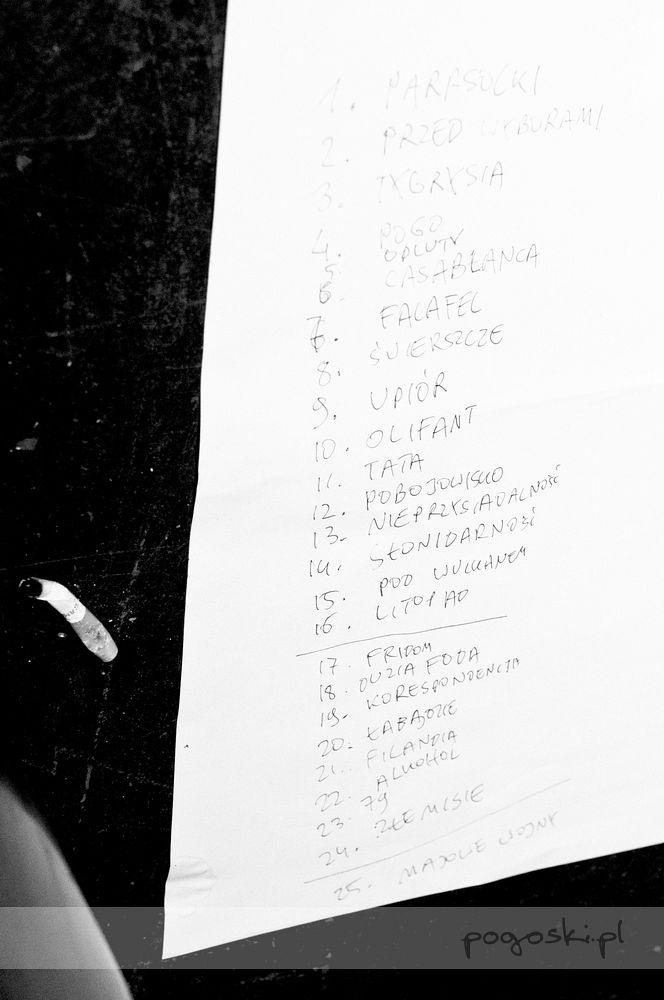 1. PARASOLKI
2. PRZED WYBORAMI
3. TYGRYSIA
4. POGO
5. OPLUTY
6. CASABLANCA
7. FALAFEL
8. ŚWIERSZCZE
9. UPIÓR
10. OLIFANT
11. TATA
12. POBOJOWISKO
13. NIEPRZYSIADALNOŚĆ
14. SŁONIDARNOŚĆ
15. POD WULKANEM
16. LITOPAD
17. FRIDOM
18. DUZIA FODA
19. KORESPONDENCJA
20. ŁABĄDZIE
21. FILANDIA
22. ALKOHOL
23. 79
24. ZŁE MISIE
25. MAJOWE WOJNY
pogoski.pl